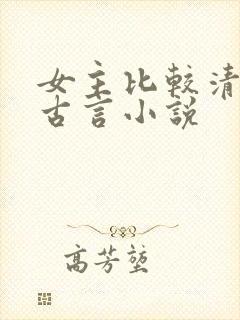 女主比較清
古言小說
高芳堃